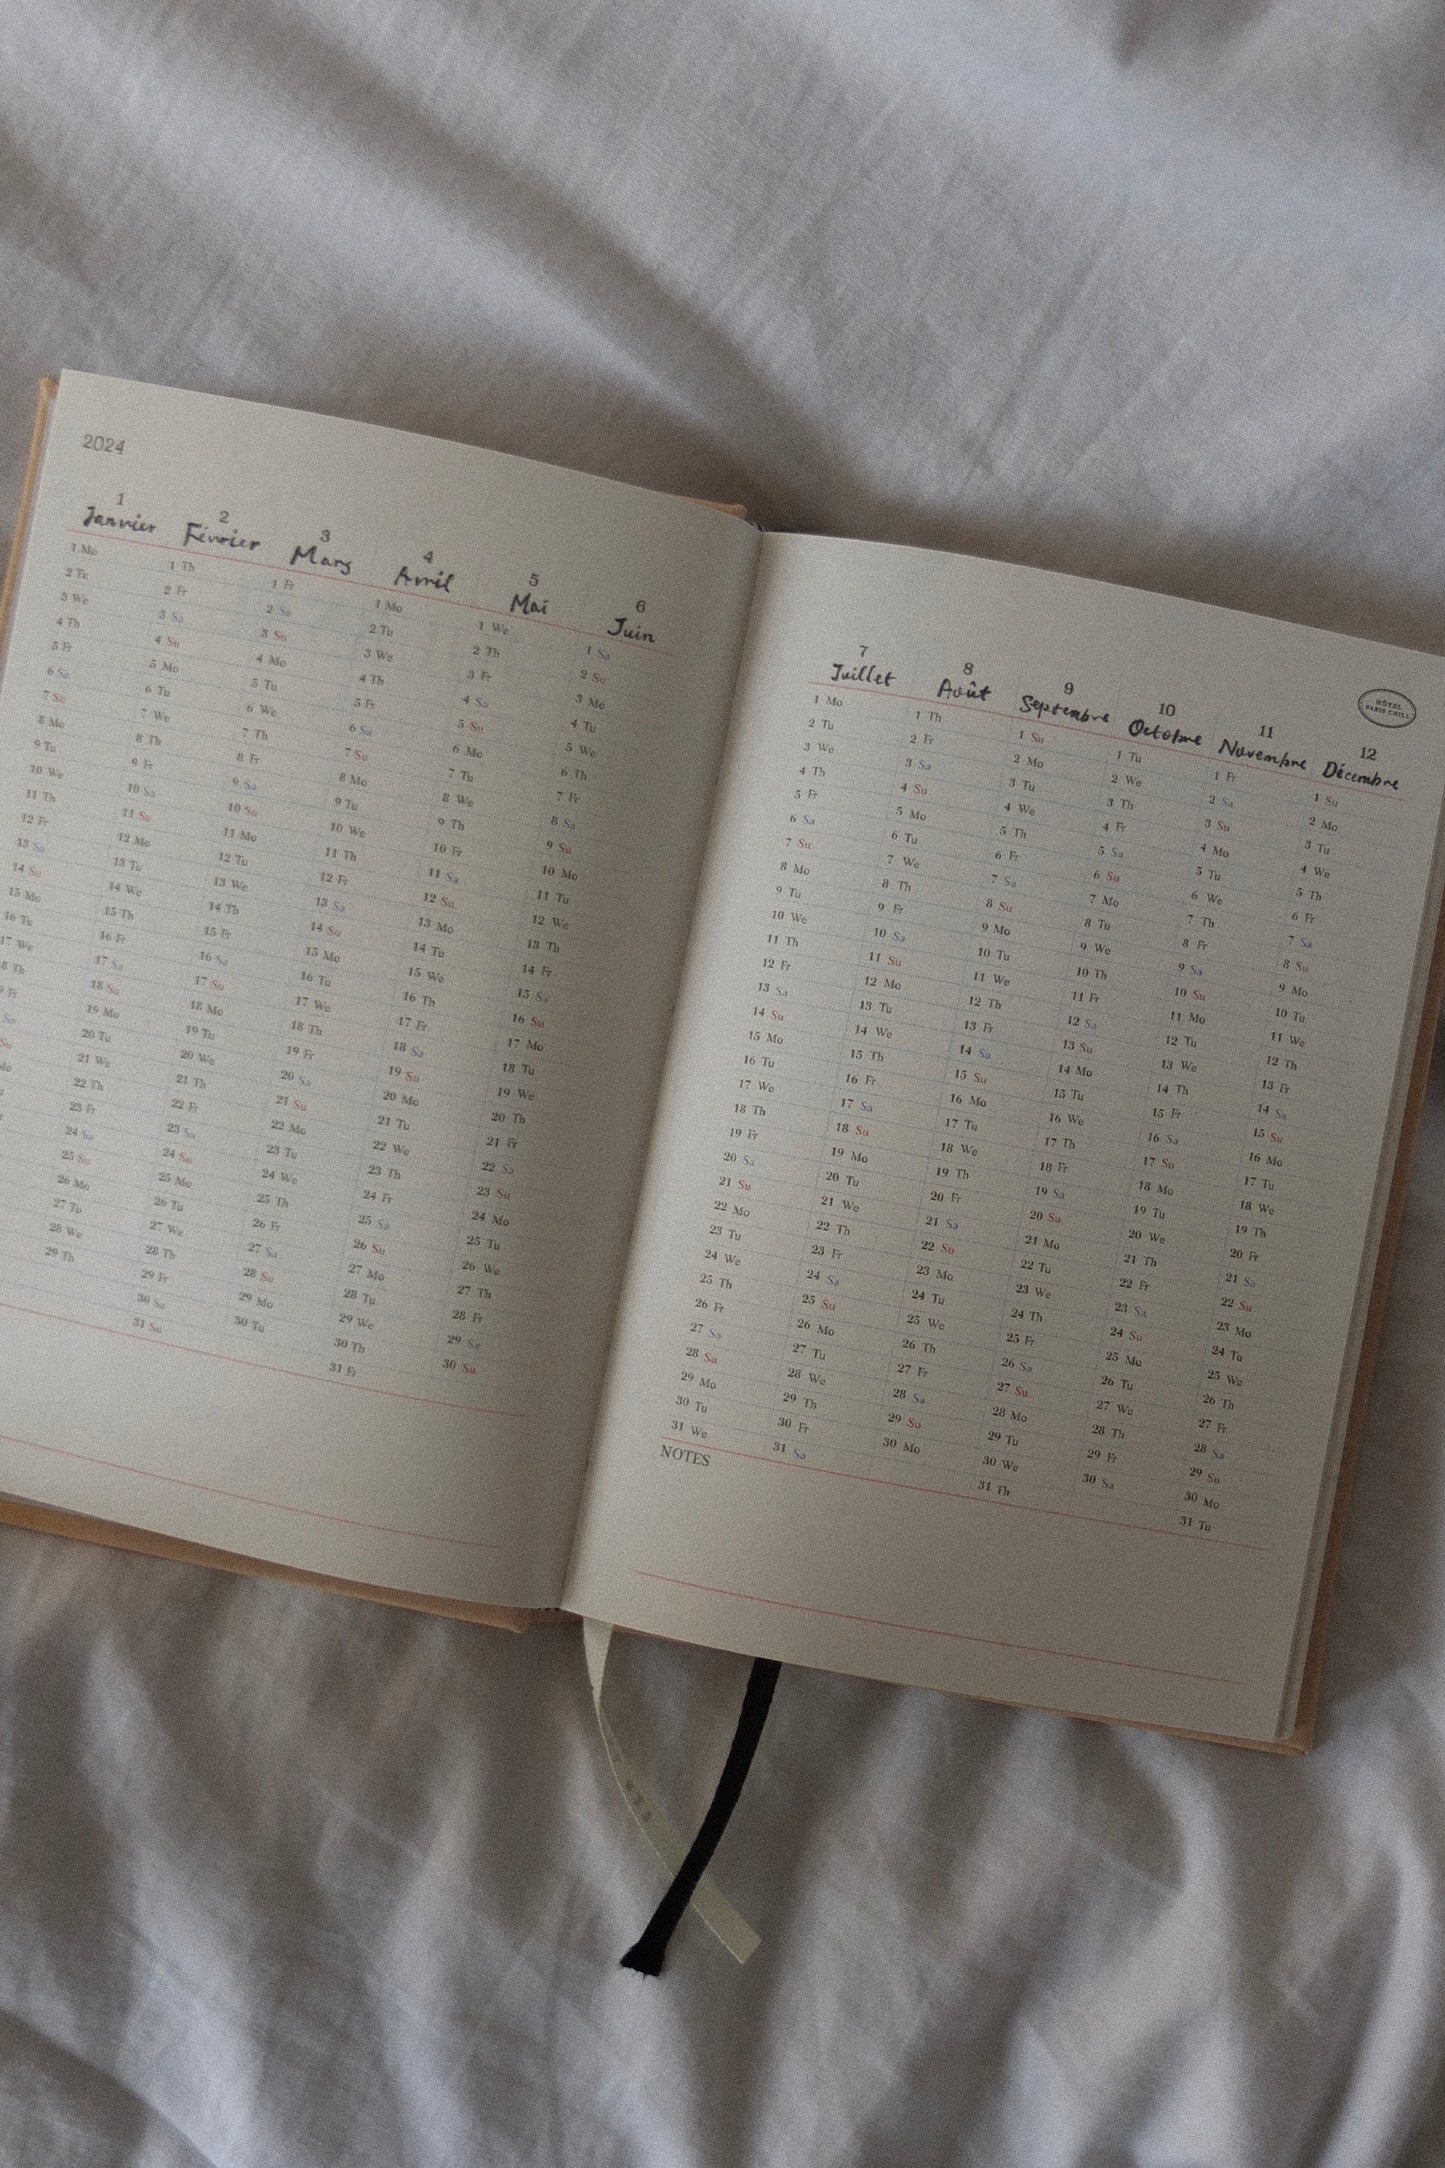 2024
1
Janvier
1 Mo
2 Tu
3 We
4 Th
5 Fr
6 Sa
7 Su
8 Mo
9 Tu
10 We
11 Th
12 Fr
13 Sa
14 Su
15 Mo
16 Tu
17 We
8 Th
Fr
Sa
Su
2
Février
1 Th
2 Fr
3 Sa
4 Su
5 Mo
6 Tu
7 We
8 Th
9 Fr
10 Sa
11 Su
12 Mo
13 Tu
14 We
15 Th
16 Fr
17 Sa
18 Su
19 Mo
20 Tu
21 We
22 Th
23 Fr
24 Sa
25 Su
26 Mo
27 Tu
28 We
29 Th
3
Mars
1 Fr
2 Sa
3 Su
4 Mo
5 Tu
6 We
7 Th
8 Fr
9 Sa
10 Su
11 Mo
12 Tu
13 We
14 Th
15 Fr
16 Sa
17 Su
18 Mo
19 Tu
20 We
21 Th
22 Fr
23 Sa
24 Su
25 Mo
26 Tu
27 We
28 Th
29 Fr
30 Sa
31 Su
4
Avril
1 Mo
2 Tu
3 We
4 Th
5 Fr
6 Sa
7 Su
8 Mo
9 Tu
10 We
11 Th
12 Fr
13 Sa
14 Su
15 Mo
16 Tu
17 We
18 Th
19 Fr
20 Sa
21 Su
22 Mo
23 Tu
24 We
25 Th
26 Fr
27 Sa
28 Su
29 Mo
30 Tu
5
Mai
1 We
2 Th
3 Fr
4 Sa
5 Su
6 Mo
7 Tu
8 We
9 Th
10 Fr
11 Sa
12 Su
13 Mo
14 Tu
15 We
16 Th
17 Fr
18 Sa
19 Su
20 Mo
21 Tu
22 We
23 Th
24 Fr
25 Sa
26 Su
27 Mo
28 Tu
29 We
30 Th
31 Fr
6
Juin
1 Sa
2 Su
3 Mo
4 Tu
5 We
6 Th
7 Fr
8 Sa
9 Su
10 Mo
11 Tu
12 We
13 Th
14 Fr
15 Sa
16 Su
17 Mo
18 Tu
19 We
20 Th
21 Fr
22 Sa
23 Su
24 Mo
25 Tu
26 We
27 Th
28 Fr
29 Sa
30 Su
HÔTEL
PARIS CHILL
7
Juillet
1 Mo
2 Tu
3 We
4 Th
5 Fr
6 Sa
7 Su
8 Mo
9 Tu
10 We
11 Th
12 Fr
13 Sa
14 Su
15 Mo
16 Tu
17 We
18 Th
19 Fr
20 Sa
21 Su
22 Mo
23 Tu
24 We
25 Th
26 Fr
27 Sa
28 Su
29 Mo
30 Tu
31 We
8
Août
1 Th
2 Fr
3 Sa
4 Su
5 Mo
6 Tu
7 We
8 Th
9 Fr
10 Sa
11 Su
12 Mo
13 Tu
14 We
15 Th
16 Fr
17 Sa
18 Su
19 Mo
20 Tu
21 We
22 Th
23 Fr
24 Sa
25 Su
26 Mo
27 Tu
28 We
29 Th
30 Fr
31 Sa
9
Septembre
1 Su
2 Mo
3 Tu
4 We
5 Th
6 Fr
7 Sa
8 Su
9 Mo
10 Tu
11 We
12 Th
13 Fr
14 Sa
15 Su
16 Mo
17 Tu
18 We
19 Th
20 Fr
21 Sa
22 Su
23 Mo
24 Tu
25 We
26 Th
27 Fr
28 Sa
29 Su
30 Mo
10
Octobre
1 Tu
2 We
3 Th
4 Fr
5 Sa
6 Su
7 Mo
8 Tu
9 We
10 Th
11 Fr
12 Sa
13 Su
14 Mo
15 Tu
16 We
17 Th
18 Fr
19 Sa
20 Su
21 Mo
22 Tu
23 We
24 Th
25 Fr
26 Sa
27 Su
28 Mo
29 Tu
30 We
31 Th
11
Novembre
1 Fr
2 Sa
3 Su
4 Mo
5 Tu
6 We
7 Th
8 Fr
9 Sa
10 Su
11 Mo
12 Tu
13 We
14 Th
15 Fr
16 Sa
17 Su
18 Mo
19 Tu
20 We
21 Th
22 Fr
23 Sa
24 Su
25 Mo
26 Tu
27 We
28 Th
29 Fr
30 Sa
12
Décembre
1 Su
2 Mo
3 Tu
4 We
5 Th
6 Fr
7 Sa
8 Su
9 Mo
10 Tu
11 We
12 Th
13 Fr
14 Sa
15 Su
16 Mo
17 Tu
18 We
19 Th
20 Fr
21 Sa
22 Su
23 Mo
24 Tu
25 We
26 Th
27 Fr
28 Sa
29 Su
30 Mo
31 Tu
NOTES